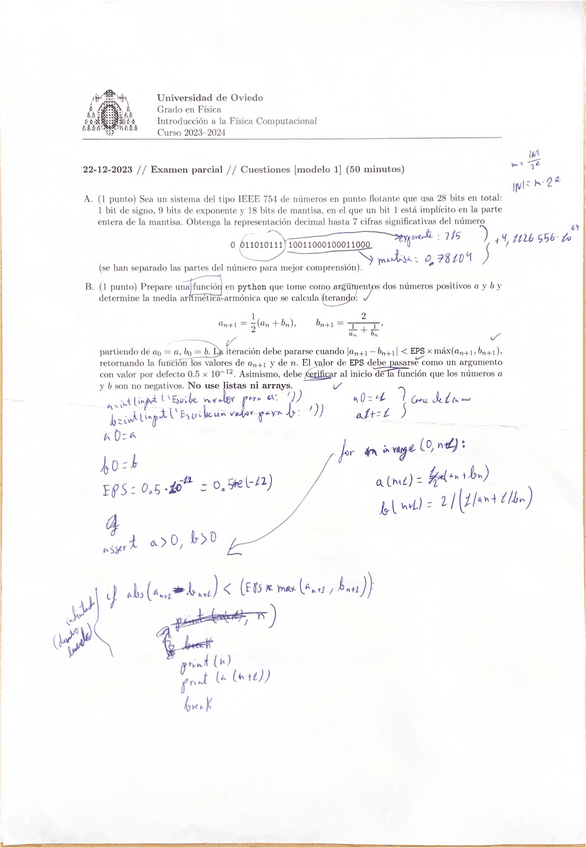 Universidad de Oviedo
Grado en Física
Introducción a la Física Computacional
Curso 2023–2024
22-12-2023 // Examen parcial // Cuestiones [modelo 1] (50 minutos)
|N| = m · 2^e
A. (1 punto) Sea un sistema del tipo IEEE 754 de números en punto flotante que usa 28 bits en total:
1 bit de signo, 9 bits de exponente y 18 bits de mantisa, en el que un bit 1 está implícito en la parte
entera de la mantisa. Obtenga la representación decimal hasta 7 cifras significativas del número
0 011010111 100110001000110000 exponente: 215
mantisa: 0,78104
(se han separado las partes del número para mejor comprensión).
B. (1 punto) Prepare una función en python que tome como argumentos dos números positivos a y b y
determina la media aritmética-armónica que se calcula iterando:
a_{n+1} = 1/2 (a_n + b_n), b_{n+1} = 2 / (1/a_n + 1/b_n),
partiendo de a_0 = a, b_0 = b. La iteración debe pararse cuando |a_{n+1} − b_{n+1}| < EPS × máx(a_{n+1}, b_{n+1}),
retornando la función los valores de a_{n+1} y de n. El valor de EPS debe pasarse como un argumento
con valor por defecto 0.5 × 10^{−12}. Asimismo, debe verificar al inicio de la función que los números a
y b son no negativos. No use listas ni arrays.
a=int(input('Escribe un valor para a: '))
b=int(input('Escribe un valor para b: '))
a0=a
b0=b
EPS = 0,5 · 10^-12 =
for n in range (0, n+1):
a(n+1) = (an + bn)
b(n+1) = 2/(1/an + 1/bn)
assert a>0, b>0
if abs(a_{n+1} - b_{n+1}) < (EPS * max(a_{n+1}, b_{n+1})):
break
print(n)
print(a(n+1))
break